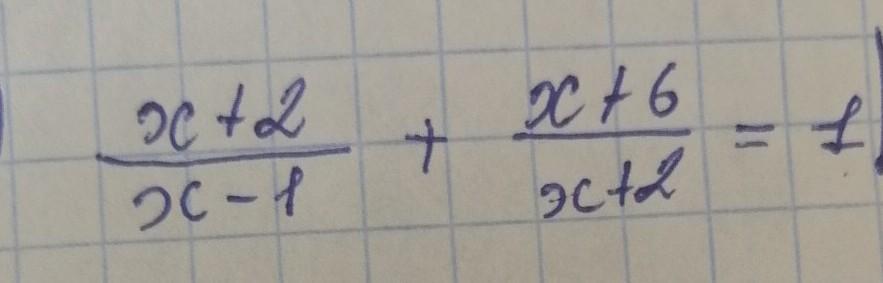 x+2/x-1 + x+6/x+2 = 1